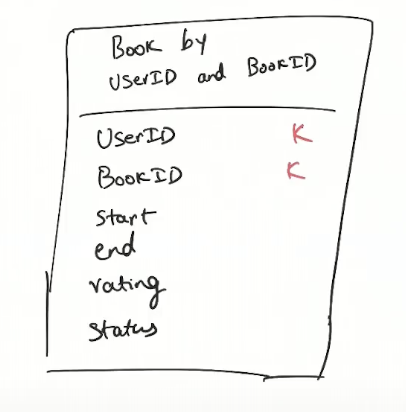 Book by
UserID and BookID
UserID K
BookID K
start
end
rating
status